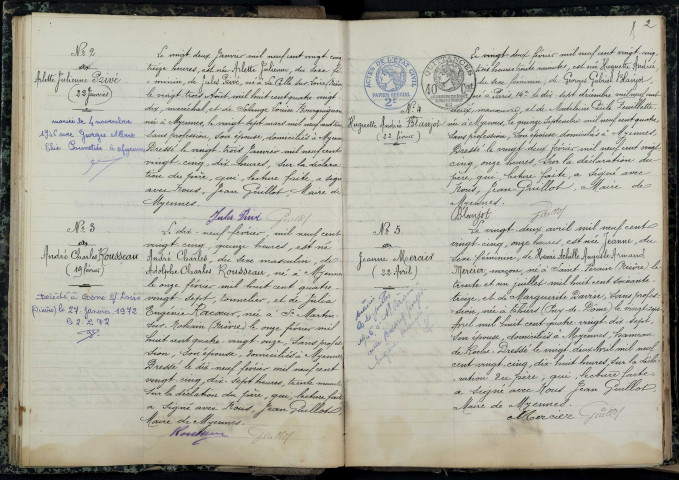 N° 2
Arlette Julienne Privé
(22 Janvier)
mariée le 4 novembre
1946 avec Georges Albert
Le vingt deux Janvier mil neuf cent vingt cinq
treize heures, est née Arlette Julienne, du sexe fé-
minin, de Jules Privé, né à La Celle sur Loire, Nièvre,
le vingt trois Août mil huit cent quatre vingt
dix, maréchal, et de Solange Louise Bourguignon
née à Myennes, le vingt sept mars mil neuf cent
sans profession, son épouse, domiciliés à Myennes
Dressé le vingt trois Janvier mil neuf cent
vingt cinq, dix heures, sur la déclara-
tion du père, qui, lecture faite, a signé
avec Nous, Jean Guillot Maire de
Myennes.
Jules Privé Guillot
N° 3
André Charles Rousseau
(19 février)
Décédé à Cosne s/ Loire
(Nièvre) le 27 Janvier 1972
2. 2. 72
Le dix-neuf février, mil neuf cent
vingt cinq, quinze heures, est né
André Charles, du sexe masculin, de
Adolphe Charles Rousseau, né à Myennes
le onze février mil huit cent quatre
vingt sept, tonnelier, et de Julia
Eugénie Racour, née à St Martin
sur Nohain (Nièvre) le onze février mil
huit cent quatre vingt onze, sans profes-
sion, son épouse, domiciliés à Myennes
Dressé le dix neuf février mil neuf cent
vingt cinq, dix sept heures, trente minutes
sur la déclaration du père, qui, lecture faite
a signé avec Nous, Jean Guillot
Maire de Myennes.
Rousseau Guillot
2
ACTES DE L'ETAT CIVIL
PAPIER SPECIAL
2F
QUITTANCES
40 Cmes
N° 4
Huguette Andrée Blanjot
(22 février)
Le vingt-deux février mil neuf cent vingt cinq
heures trente minutes, est née Huguette Andrée
du sexe féminin, de Georges Gabriel Blanjot,
né à Paris, 14e le dix sept décembre mil neuf cent
née à Myennes, le quinze septembre mil neuf cent quatre
sans profession, son épouse domiciliés à Myennes.
Dressé le vingt deux février mil neuf cent
vingt cinq, onze heures, sur la déclaration du
père, qui, lecture faite, a signé avec
Nous, Jean Guillot, Maire de
Myennes.
Blanjot Guillot
N° 5
Jeanne Mercier
(22 Avril)
Le vingt deux avril mil neuf cent
vingt cinq, onze heures, est née Jeanne, du
sexe féminin, de Henri Achille Auguste Armand
Mercier, maçon, né à Saint Verain (Nièvre) le
trente et un juillet mil huit cent soixante
treize, et de Marguerite Barre, sans profes-
sion, née à Thiers (Puy de Dôme) le vingt sept
Avril mil huit cent quatre vingt dix sept,
son épouse, domiciliés à Myennes, hameau
de Roche. Dressé le vingt deux Avril mil neuf
cent vingt cinq, dix huit heures, sur la décla-
ration du père, qui, lecture faite
a signé avec Nous, Jean Guillot
Maire de Myennes.
Mercier Guillot